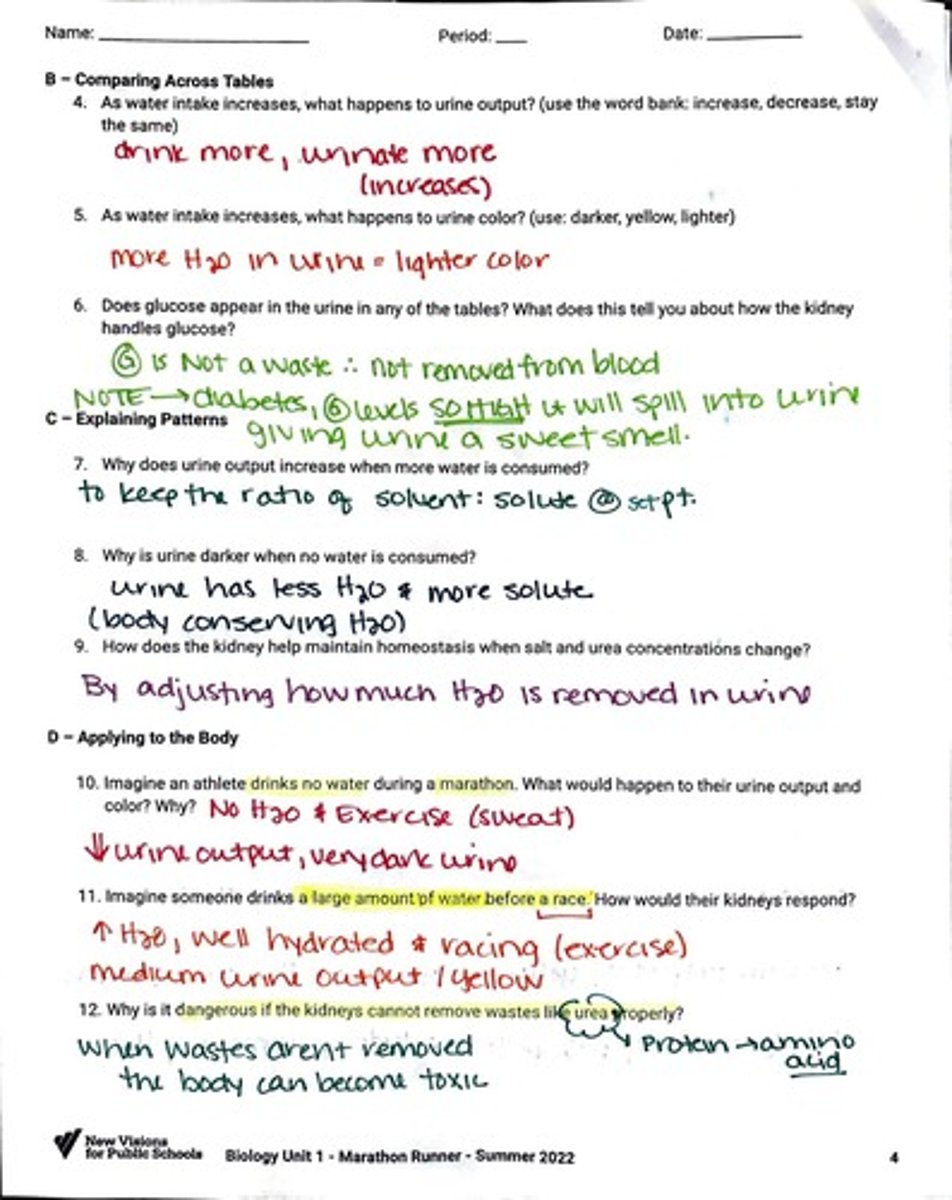 Name: ____________ Period: ___ Date: _________
B – Comparing Across Tables
4. As water intake increases, what happens to urine output? (use the word bank: increase, decrease, stay
the same)
drink more, urinate more
(increases)
5. As water intake increases, what happens to urine color? (use: darker, yellow, lighter)
more H2O in urine = lighter color
6. Does glucose appear in the urine in any of the tables? What does this tell you about how the kidney
handles glucose?
Ⓖ is Not a waste ∴ not removed from blood
NOTE → diabetes, Ⓖ levels so high it will spill into urine
C – Explaining Patterns
giving urine a sweet smell.
7. Why does urine output increase when more water is consumed?
to keep the ratio of solvent: solute @ set pt.
8. Why is urine darker when no water is consumed?
urine has less H2O & more solute
(body conserving H2O)
9. How does the kidney help maintain homeostasis when salt and urea concentrations change?
By adjusting how much H2O is removed in urine
D – Applying to the Body
10. Imagine an athlete drinks no water during a marathon. What would happen to their urine output and
color? Why? No H2O & Exercise (sweat)
↓ urine output, very dark urine
11. Imagine someone drinks a large amount of water before a race. How would their kidneys respond?
↑ H2O, well hydrated & racing (exercise)
medium urine output / yellow
12. Why is it dangerous if the kidneys cannot remove wastes like urea properly?
When wastes arent removed
protein → amino
acid
the body can become toxic
New Visions
for Public Schools
Biology Unit 1 - Marathon Runner - Summer 2022 4